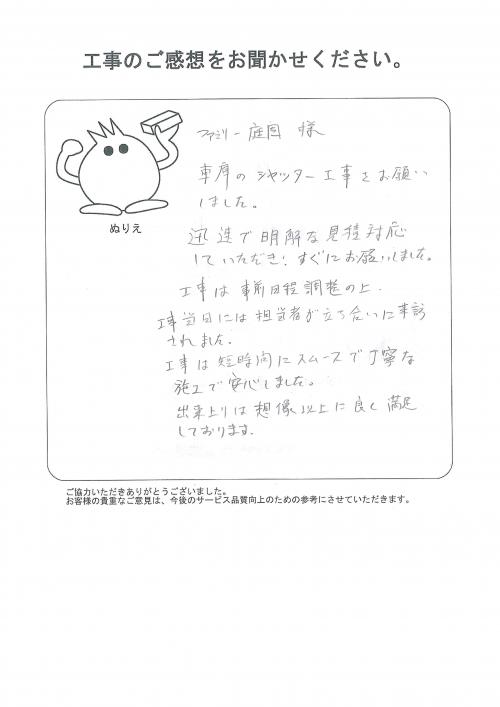 工事のご感想をお聞かせください。
ファミリー庭園 様
車庫のシャッター工事をお願い
しました。
迅速で明解な見積対応
していただき、すぐにお願いしました。
工事は事前日程調整の上、
工事当日には担当者が立ち合いに来訪
されました。
工事は短時間にスムースで丁寧な
施工で安心しました。
出来上りは想像以上に良く満足
しております。
ぬりえ
ご協力いただきありがとうございました。
お客様の貴重なご意見は、今後のサービス品質向上のための参考にさせていただきます。